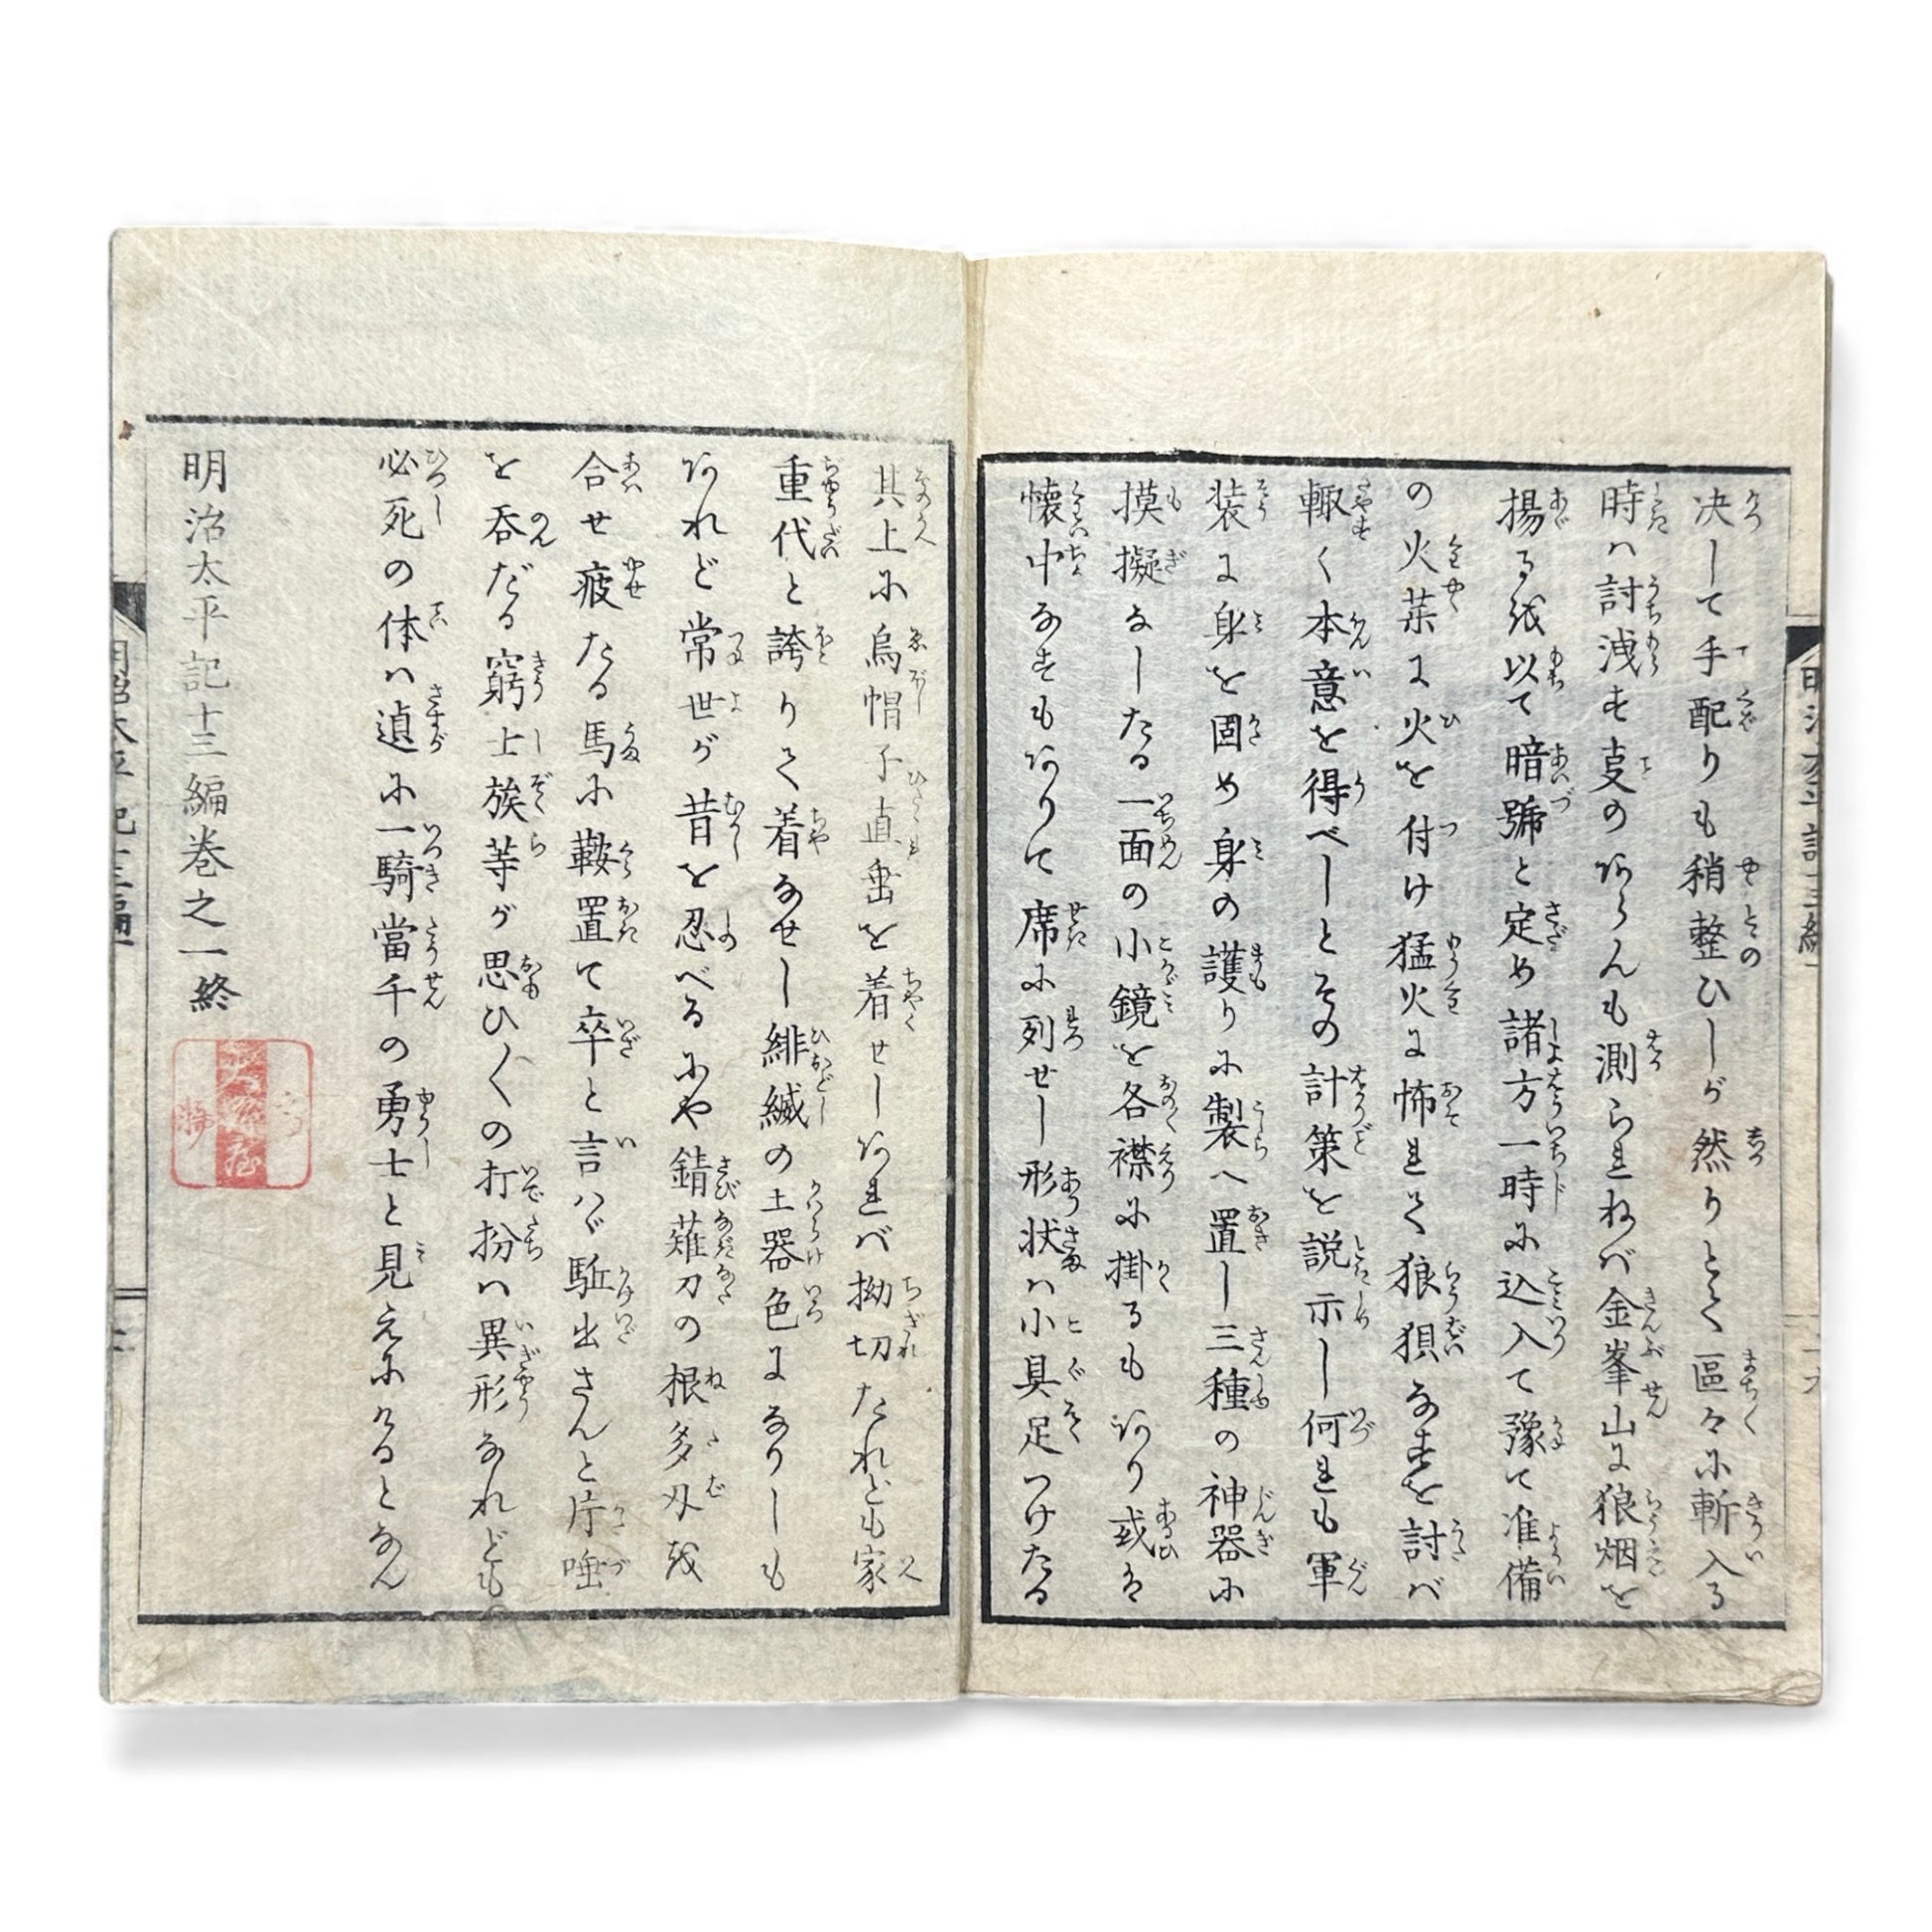 决して手配りも稍整ひしが然りとて區々に斬入る
時ハ討洩す支のあらんも測られねバ金峯山に狼烟を
揚るを以て暗號と定め諸方一時に込入て豫て准備
の火薬に火を付け猛火に怖れて狼狽なすを討バ
輙く本意を得べしとその計策を説示し何れも軍
装に身を固め身の護りに製へ置し三種の神器に
摸擬なしたる一面の小鏡を各襟に掛るもあり或は
懐中なすもありて席に列せし形状ハ小具足つけたる
其上に烏帽子直垂を着せしあれバ拗切たれども家
重代と誇りて着なせし緋縅の土器色になりしも
あれど常世が昔を忍べるにや錆薙刀の根多刄を
合せ疲たる馬に鞍置て卒と言ハヾ駈出さんと片唾
を呑だる窮士族等が思ひ〱の打扮ハ異形なれども
必死の体ハ遉に一騎當千の勇士と見えにけるとなん
明治太平記十三編巻之一終